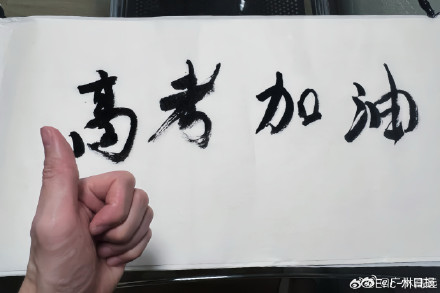 高考加油
@广州日报